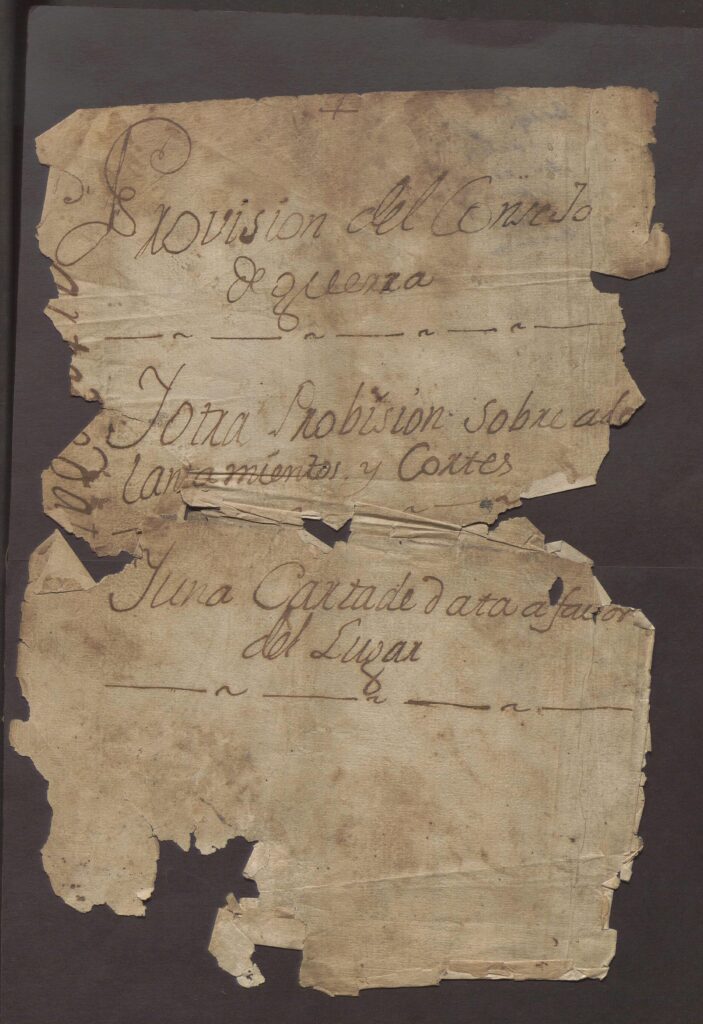 +
Provision del Consejo
de guerra
Jotra Probision sobre ade
lantamientos y Cortes
Juna Carta de data a favor
del Lugar